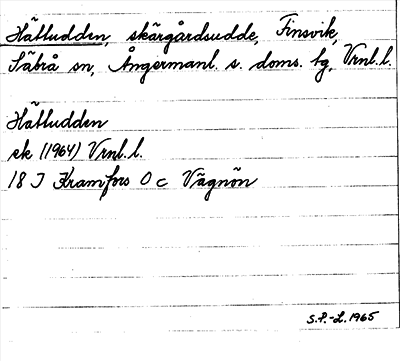 Hälludden, skärgårdsudde, Finsvik,
Säbrå sn, Ångermanl. s. doms. tg, Vrnl. l.
Hälludden
ek (1964) Vrnl. l.
18 J Kramfors O c Vägnön
S.P.-L. 1965